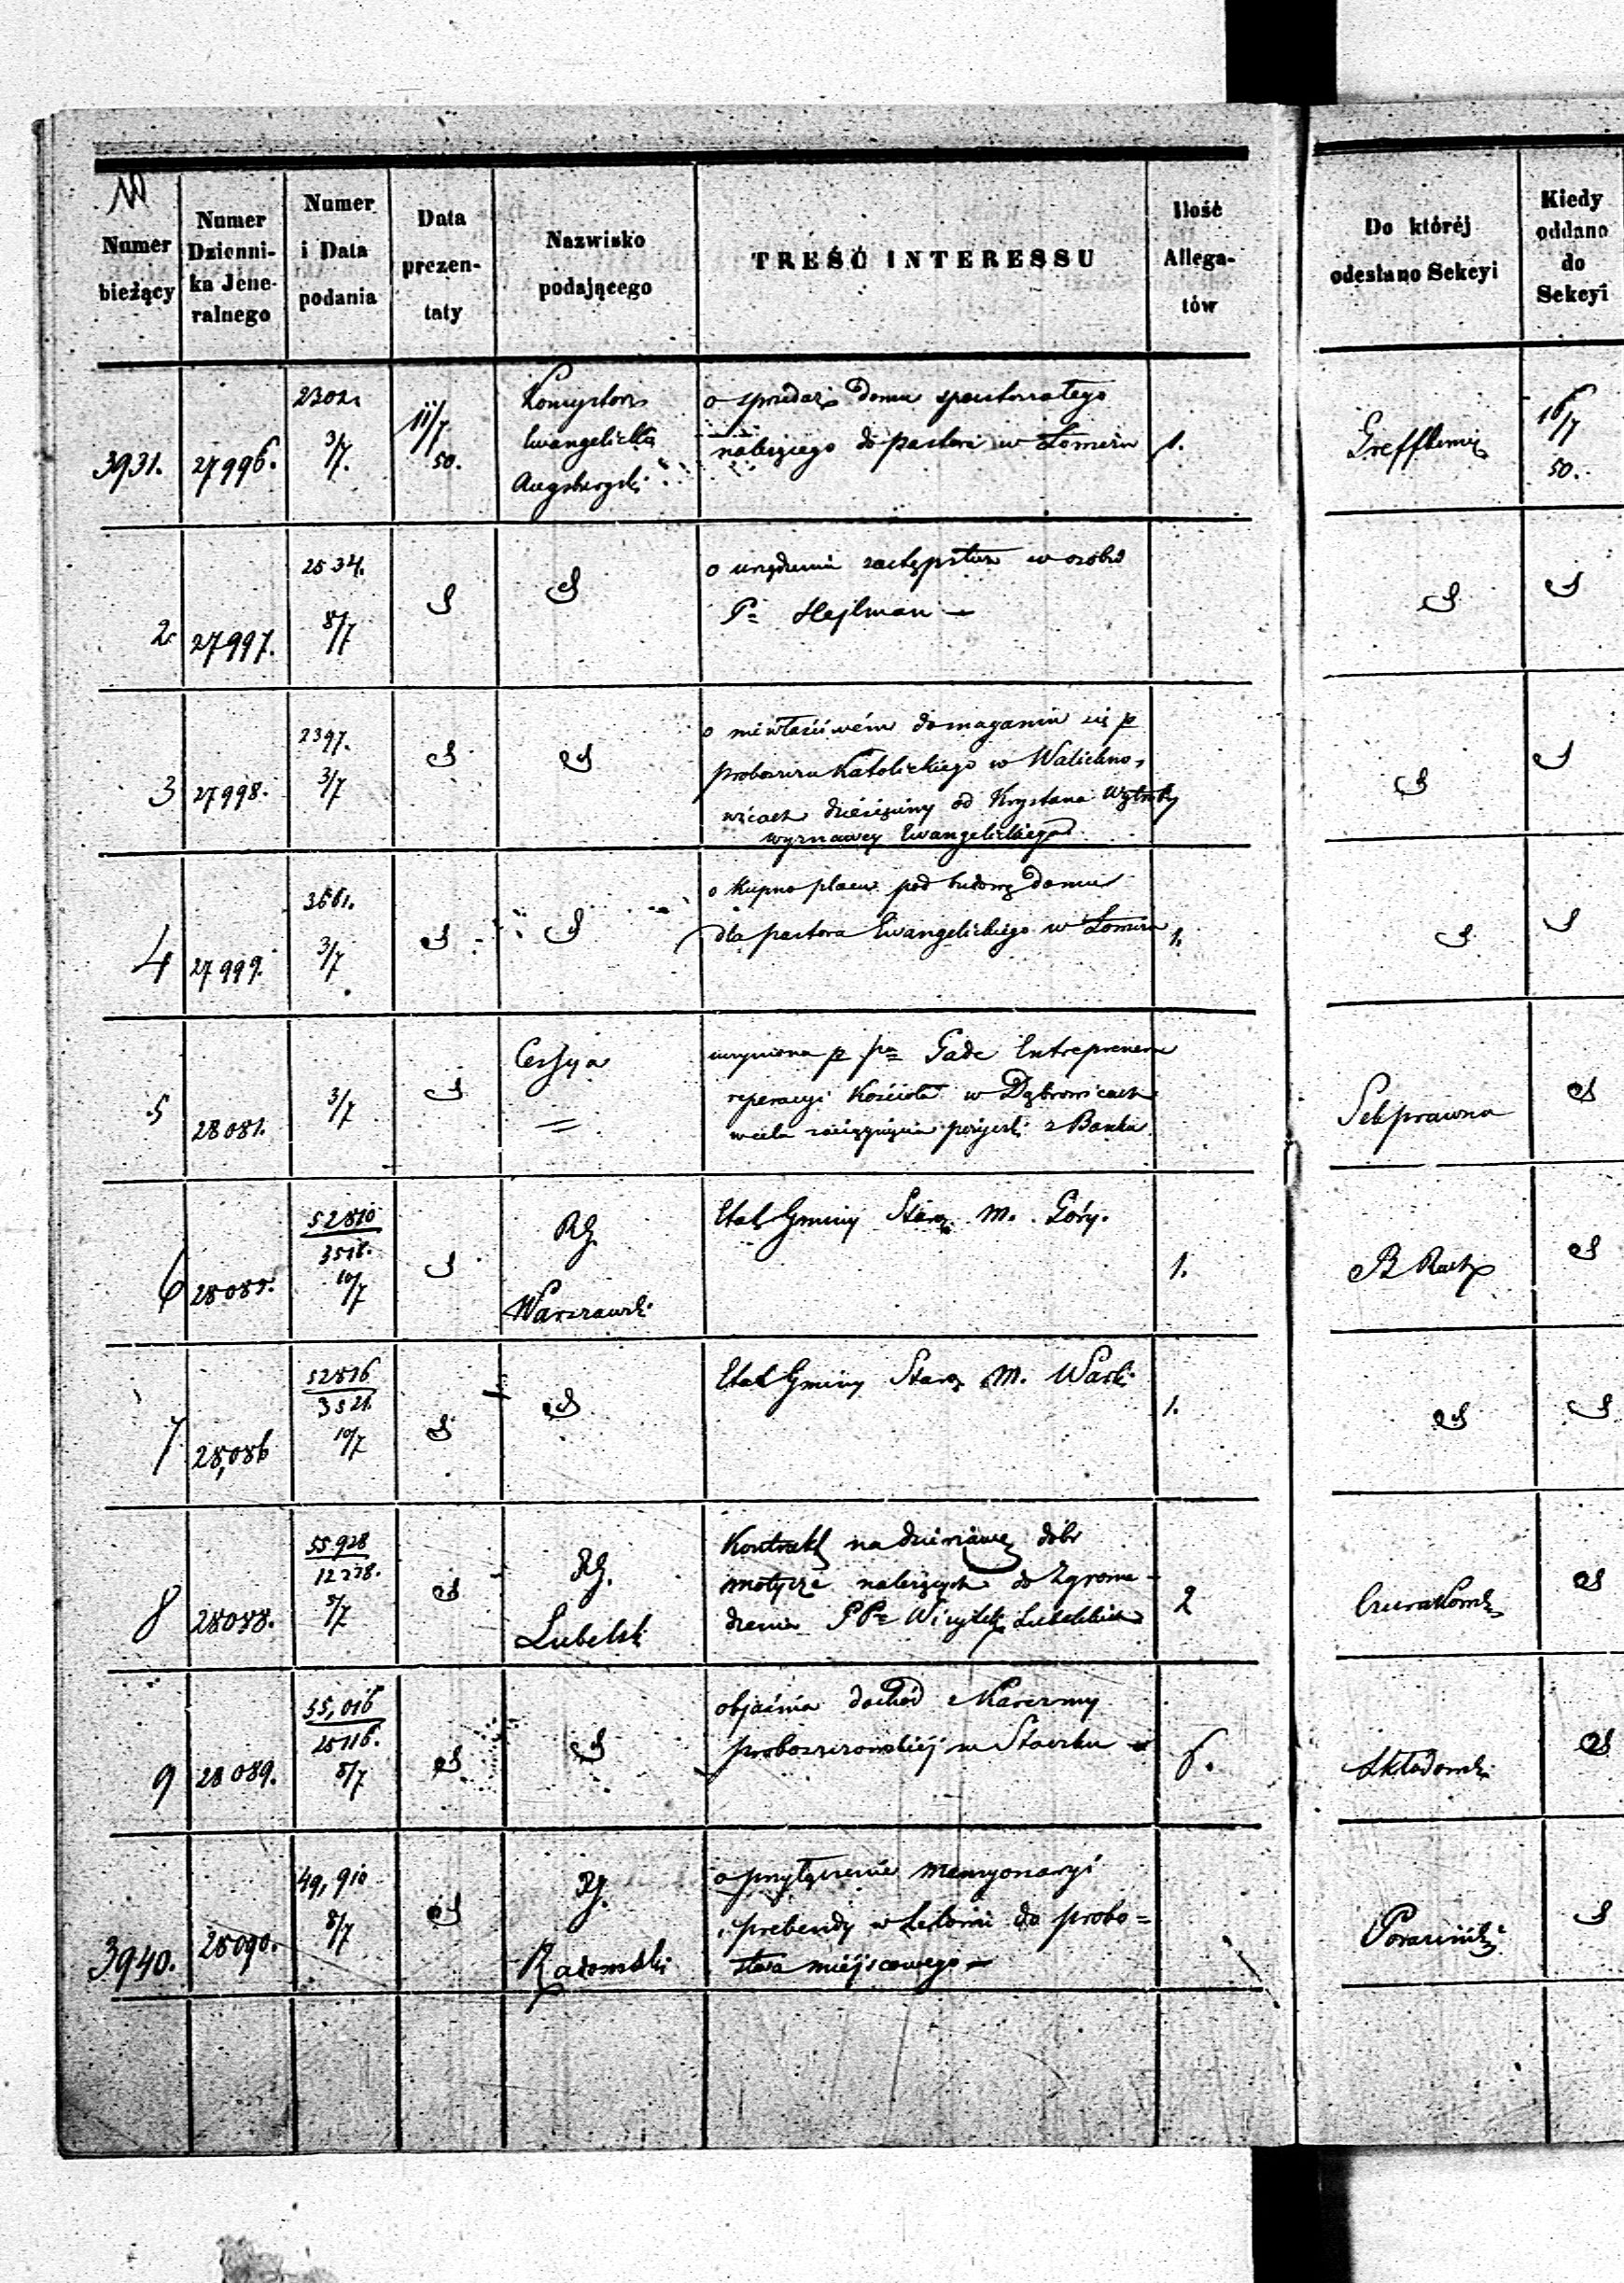 Numer bieżący
Numer Dzienni-ka Jene-ralnego
Numer i Data podania
Data prezen-taty
Nazwisko podającego
TREŚĆ INTERESSU
Ilość Allega-tów
Do któréj odesłano Sekcyi
Kiedy oddano do Sekcyi
3931. 27996. 2302. 3/7. 11/7 50.
Konsystorz
Ewangelicko
Augsburgski
o sprzedaży Domu
należącego do pastora w Łomży 1.
16/7 50.
2. 27997. 2534. 8/7
o urządzenie zastępstwa w osobie
Pa Hejlman —
3 27998. 2397. 3/7
o niewłaściwém domaganiu się p
proboszcza Katolickiego w Walichno-
wicach dziesięciny od Krystana
wyznawcy Ewangelickiego
4 27999. 3661. 3/7
o kupno placu pod budowę domu
dla pastora Ewangelickiego w Łomży 1.
5 28081. 3/7
Cessya
uczyniona p Pa Gade Entreprenera
reperacyi Kościoła w Dąbrowicach
w celu zaciągnięcia pożyczki z Banku
Sek prawna
6 28085. 52810 3518. 10/7
RG.
Warszawski
Etat Gminy Staroz. M. Góry. 1.
7 28,086 52816 3521. 10/7
Etat Gminy Staroz. M. Warki 1.
8 28088. 55928 12278. 8/7
RG.
Lubelski
Kontrakt na dzierżawę dóbr
Motycze należących do Zgroma-
dzenia PPn Wizytek Lubelskich 2
9 28089. 55,016 25116. 8/7
objaśnia dochód z Karczmy
proboszczowskiéj w Stoczku 6.
Składowski
3940. 28090. 49,910 8/7
RG.
Radomski
o przyłączenie mansyonaryi
i prebendy w Lelowie do probo=
stwa miéjscowego —